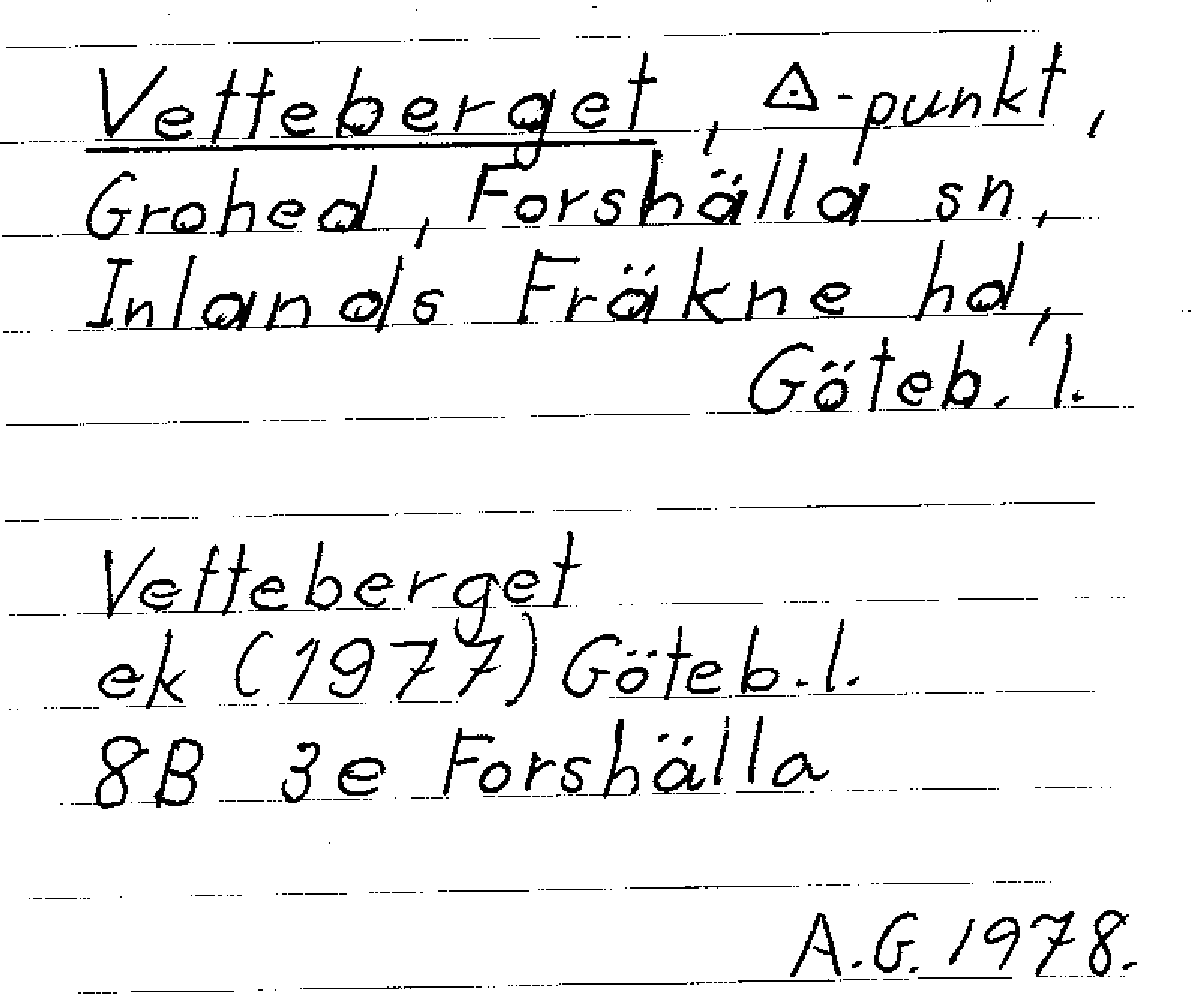 Vetteberget, △-punkt,
Grohed, Forshälla sn,
Inlands Fräkne hd,
Göteb. l.
Vetteberget
ek (1977) Göteb. l.
8B 3e Forshälla
A.G. 1978.